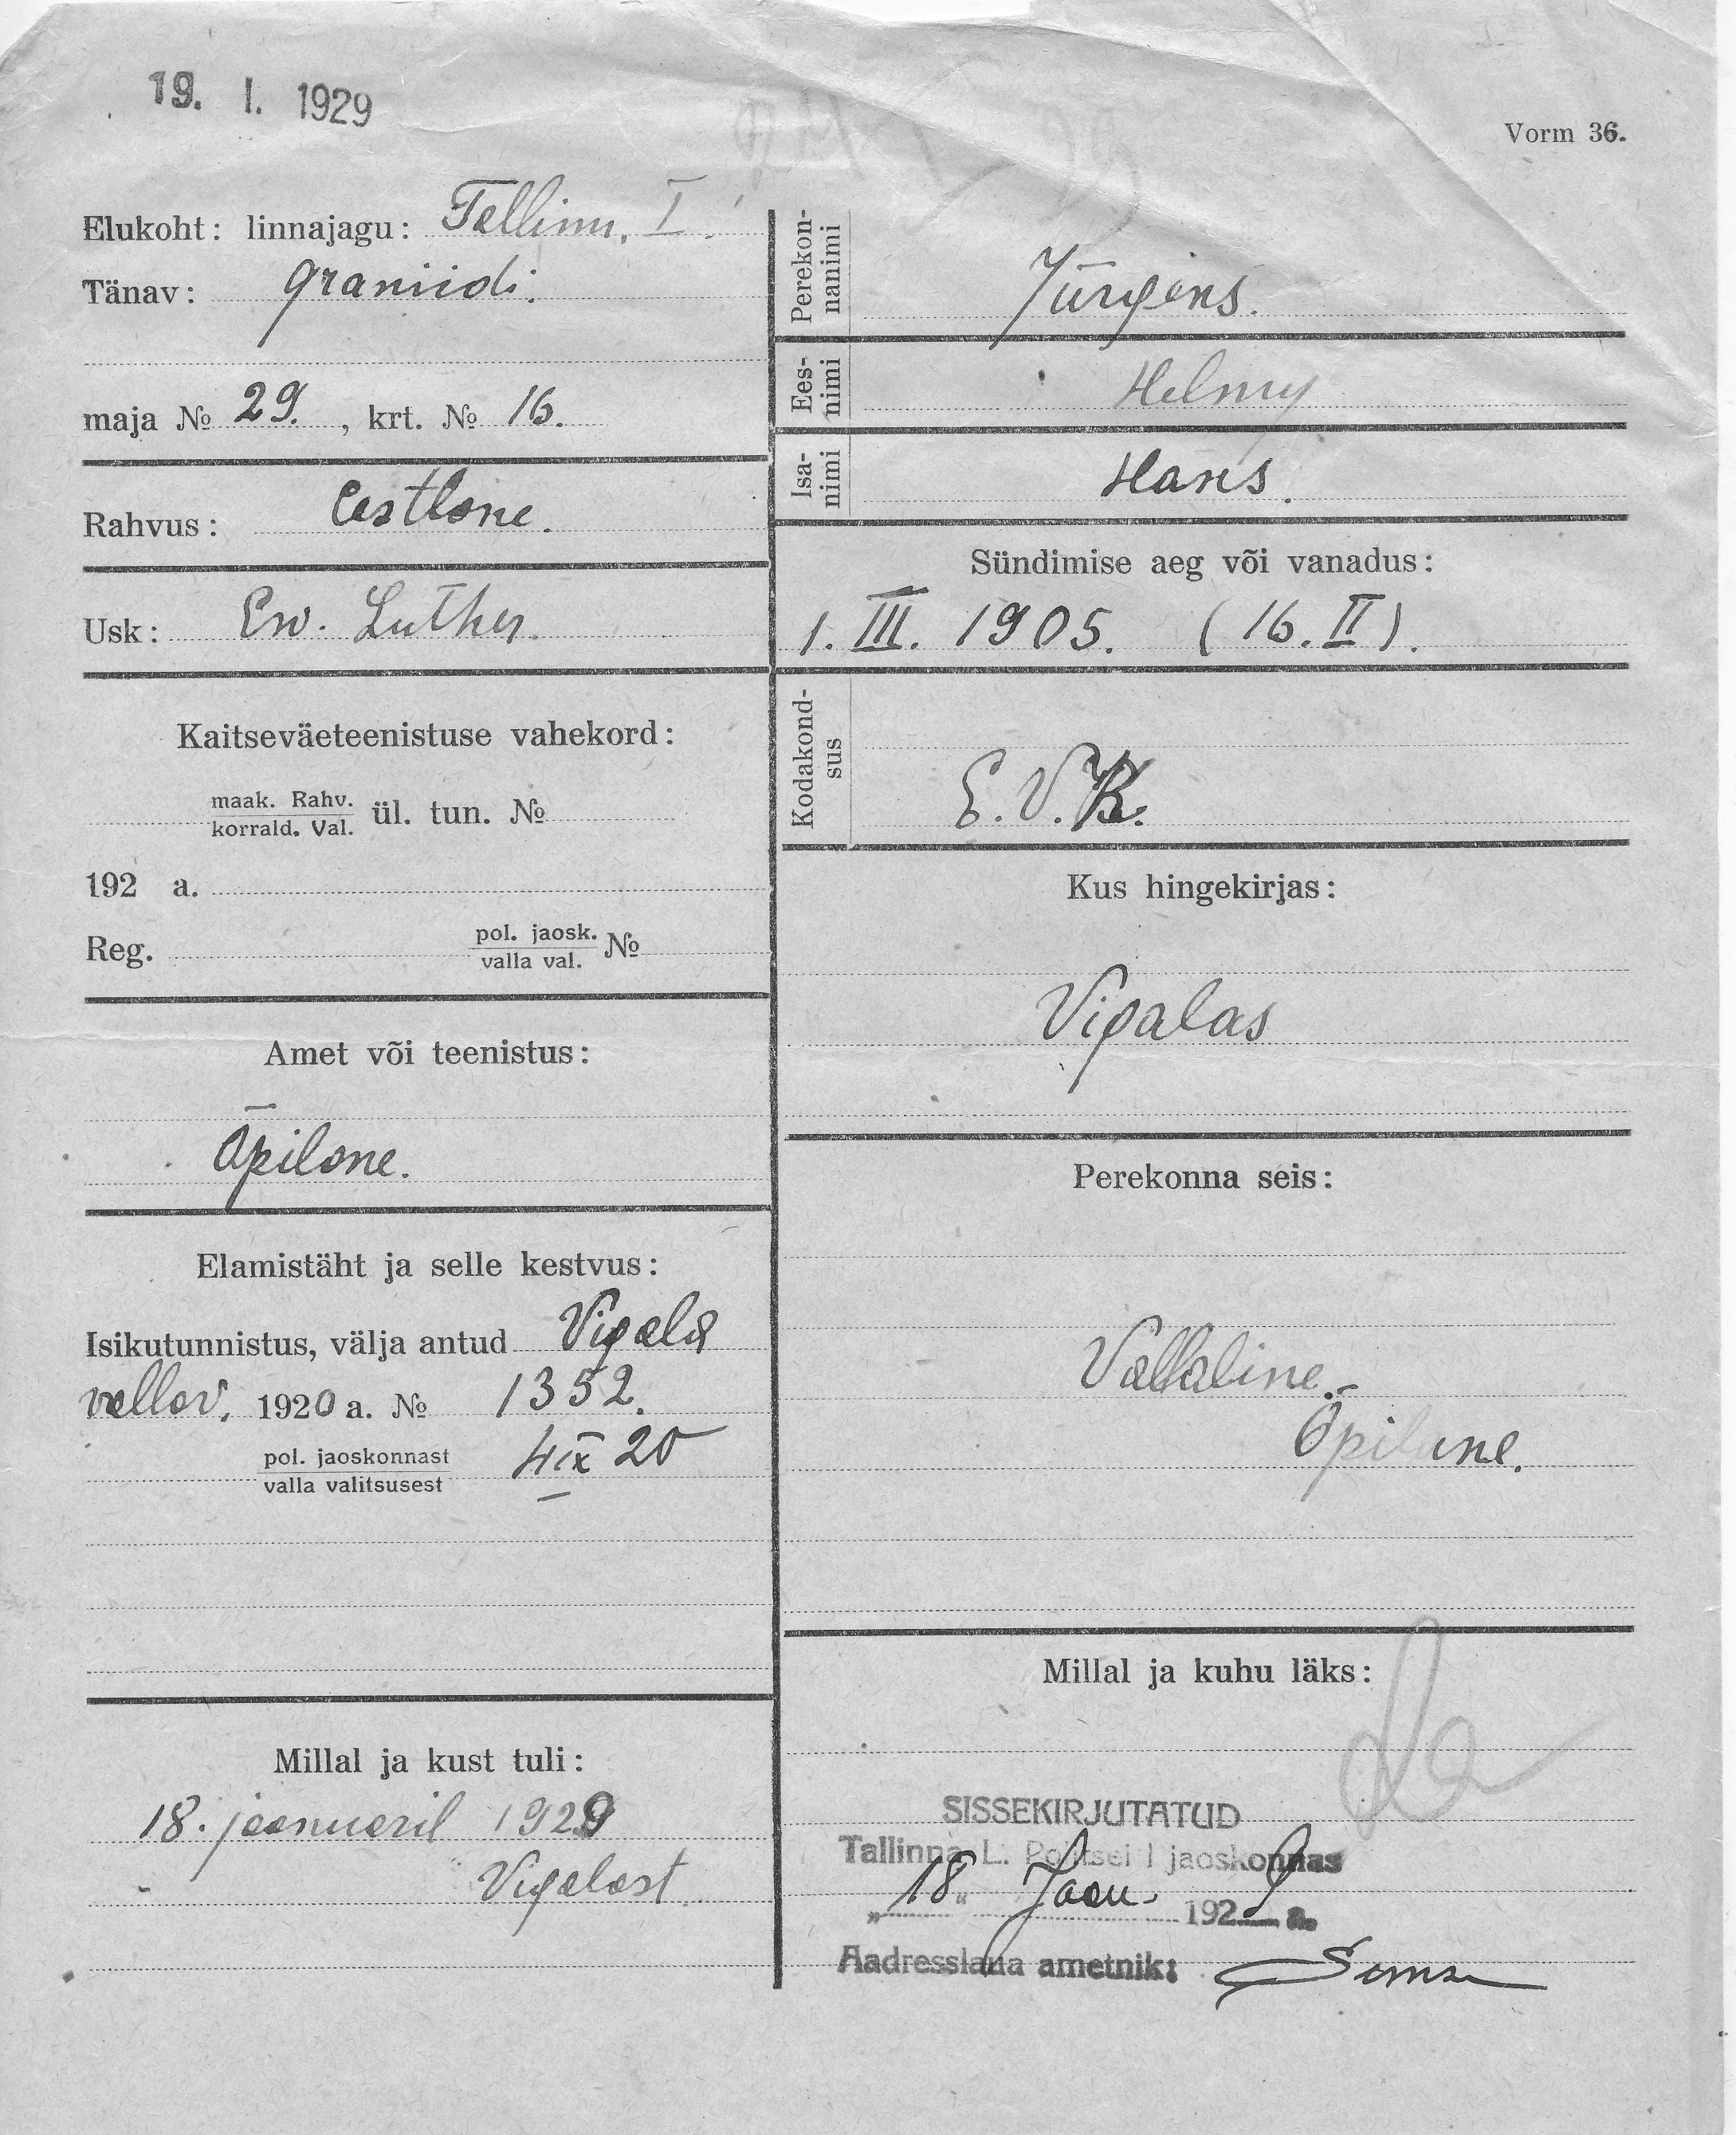 19. I. 1929
Vorm 36.
Elukoht: linnajagu: Tallinn, I.
Tänav: Graniidi.
maja № 29. , krt. № 16.
Rahvus: Eestlane.
Usk: Ew. Luther.
Kaitseväeteenistuse vahekord:
maak. Rahv.
korrald. Val. ül. tun. №
192 a.
Reg. pol. jaosk. №
valla val.
Amet või teenistus:
Õpilane.
Elamistäht ja selle kestvus:
Isikutunnistus, välja antud Vigala
vallav. 1920 a. № 1352.
pol. jaoskonnast 4 IX 20
valla valitsusest
Millal ja kust tuli:
18. jaanuaril 1929
Vigalast.
Perekon-
nanimi
Jürgens.
Ees-
nimi
Helmy
Isa-
nimi
Hans.
Sündimise aeg või vanadus:
1. III. 1905. (16. II).
Kodakond-
sus
E. V. K.
Kus hingekirjas:
Vigalas
Perekonna seis:
Vallaline.
Õpilane.
Millal ja kuhu läks:
SISSEKIRJUTATUD
Tallinna L. Politsei I jaoskonnas
„18" Jaan. 1929 a.
Aadresslaua ametnik: